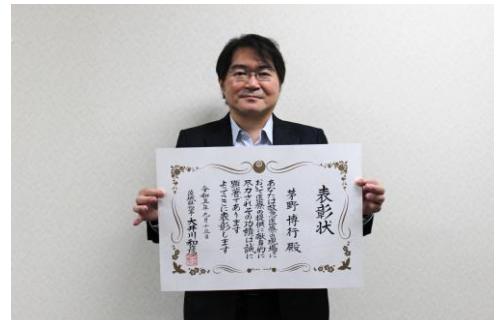 表彰状
茅野博行 殿
あなたは救急医療の現場に
おいて医療の提供に献身的に
尽力されその功績は誠に
顕著であります
よってここに表彰します
令和五年九月十三日
茨城県知事 大井川和彦